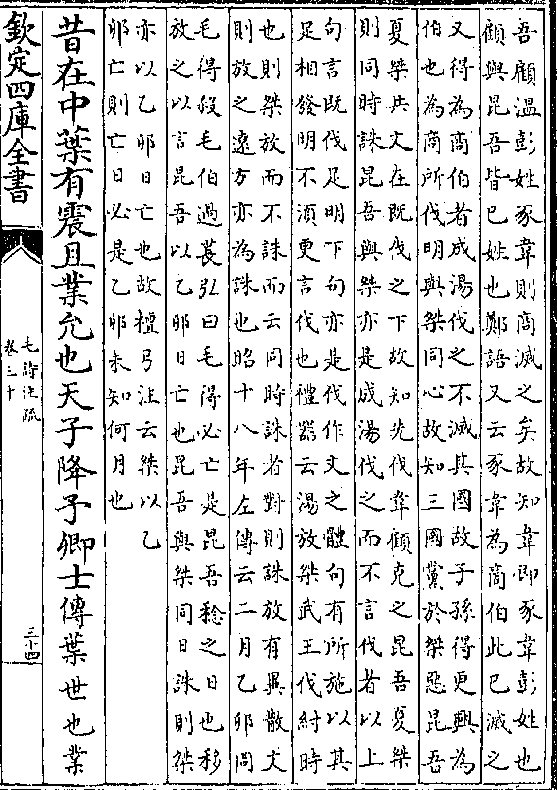 吾顧溫彭姓豕韋則商滅之矣故知韋即豕韋彭姓也
顧與昆吾皆巳姓也鄭語又云豕韋為商伯此巳滅之
又得為商伯者成湯伐之不滅其國故子孫得更興為
伯也為商所伐明與桀同心故知三國黨於桀惡昆吾
夏桀共文在既伐之下故知先伐韋顧克之昆吾夏桀
則同時誅昆吾與桀亦是成湯伐之而不言伐者以上
句言既伐足明下句亦是伐作文之體句有所施以其
足相發明不須更言伐也禮器云湯放桀武王伐紂時
也則桀放而不誅而云同時誅者對則誅放有異散文
則放之遠方亦為誅也昭十八年左傳云二月乙卯周
毛得殺毛伯過萇弘曰毛得必亡是昆吾稔之日也移
故之以言昆吾以乙卯日亡也昆吾與桀同日誅則桀
亦以乙卯日亡也故檀弓注云桀以乙
卯亡則亡日必是乙卯未知何月也
昔在中葉有震且業允也天子降予卿士傳葉世也業
欽定四庫全書
毛詩注疏
卷三十
三十四